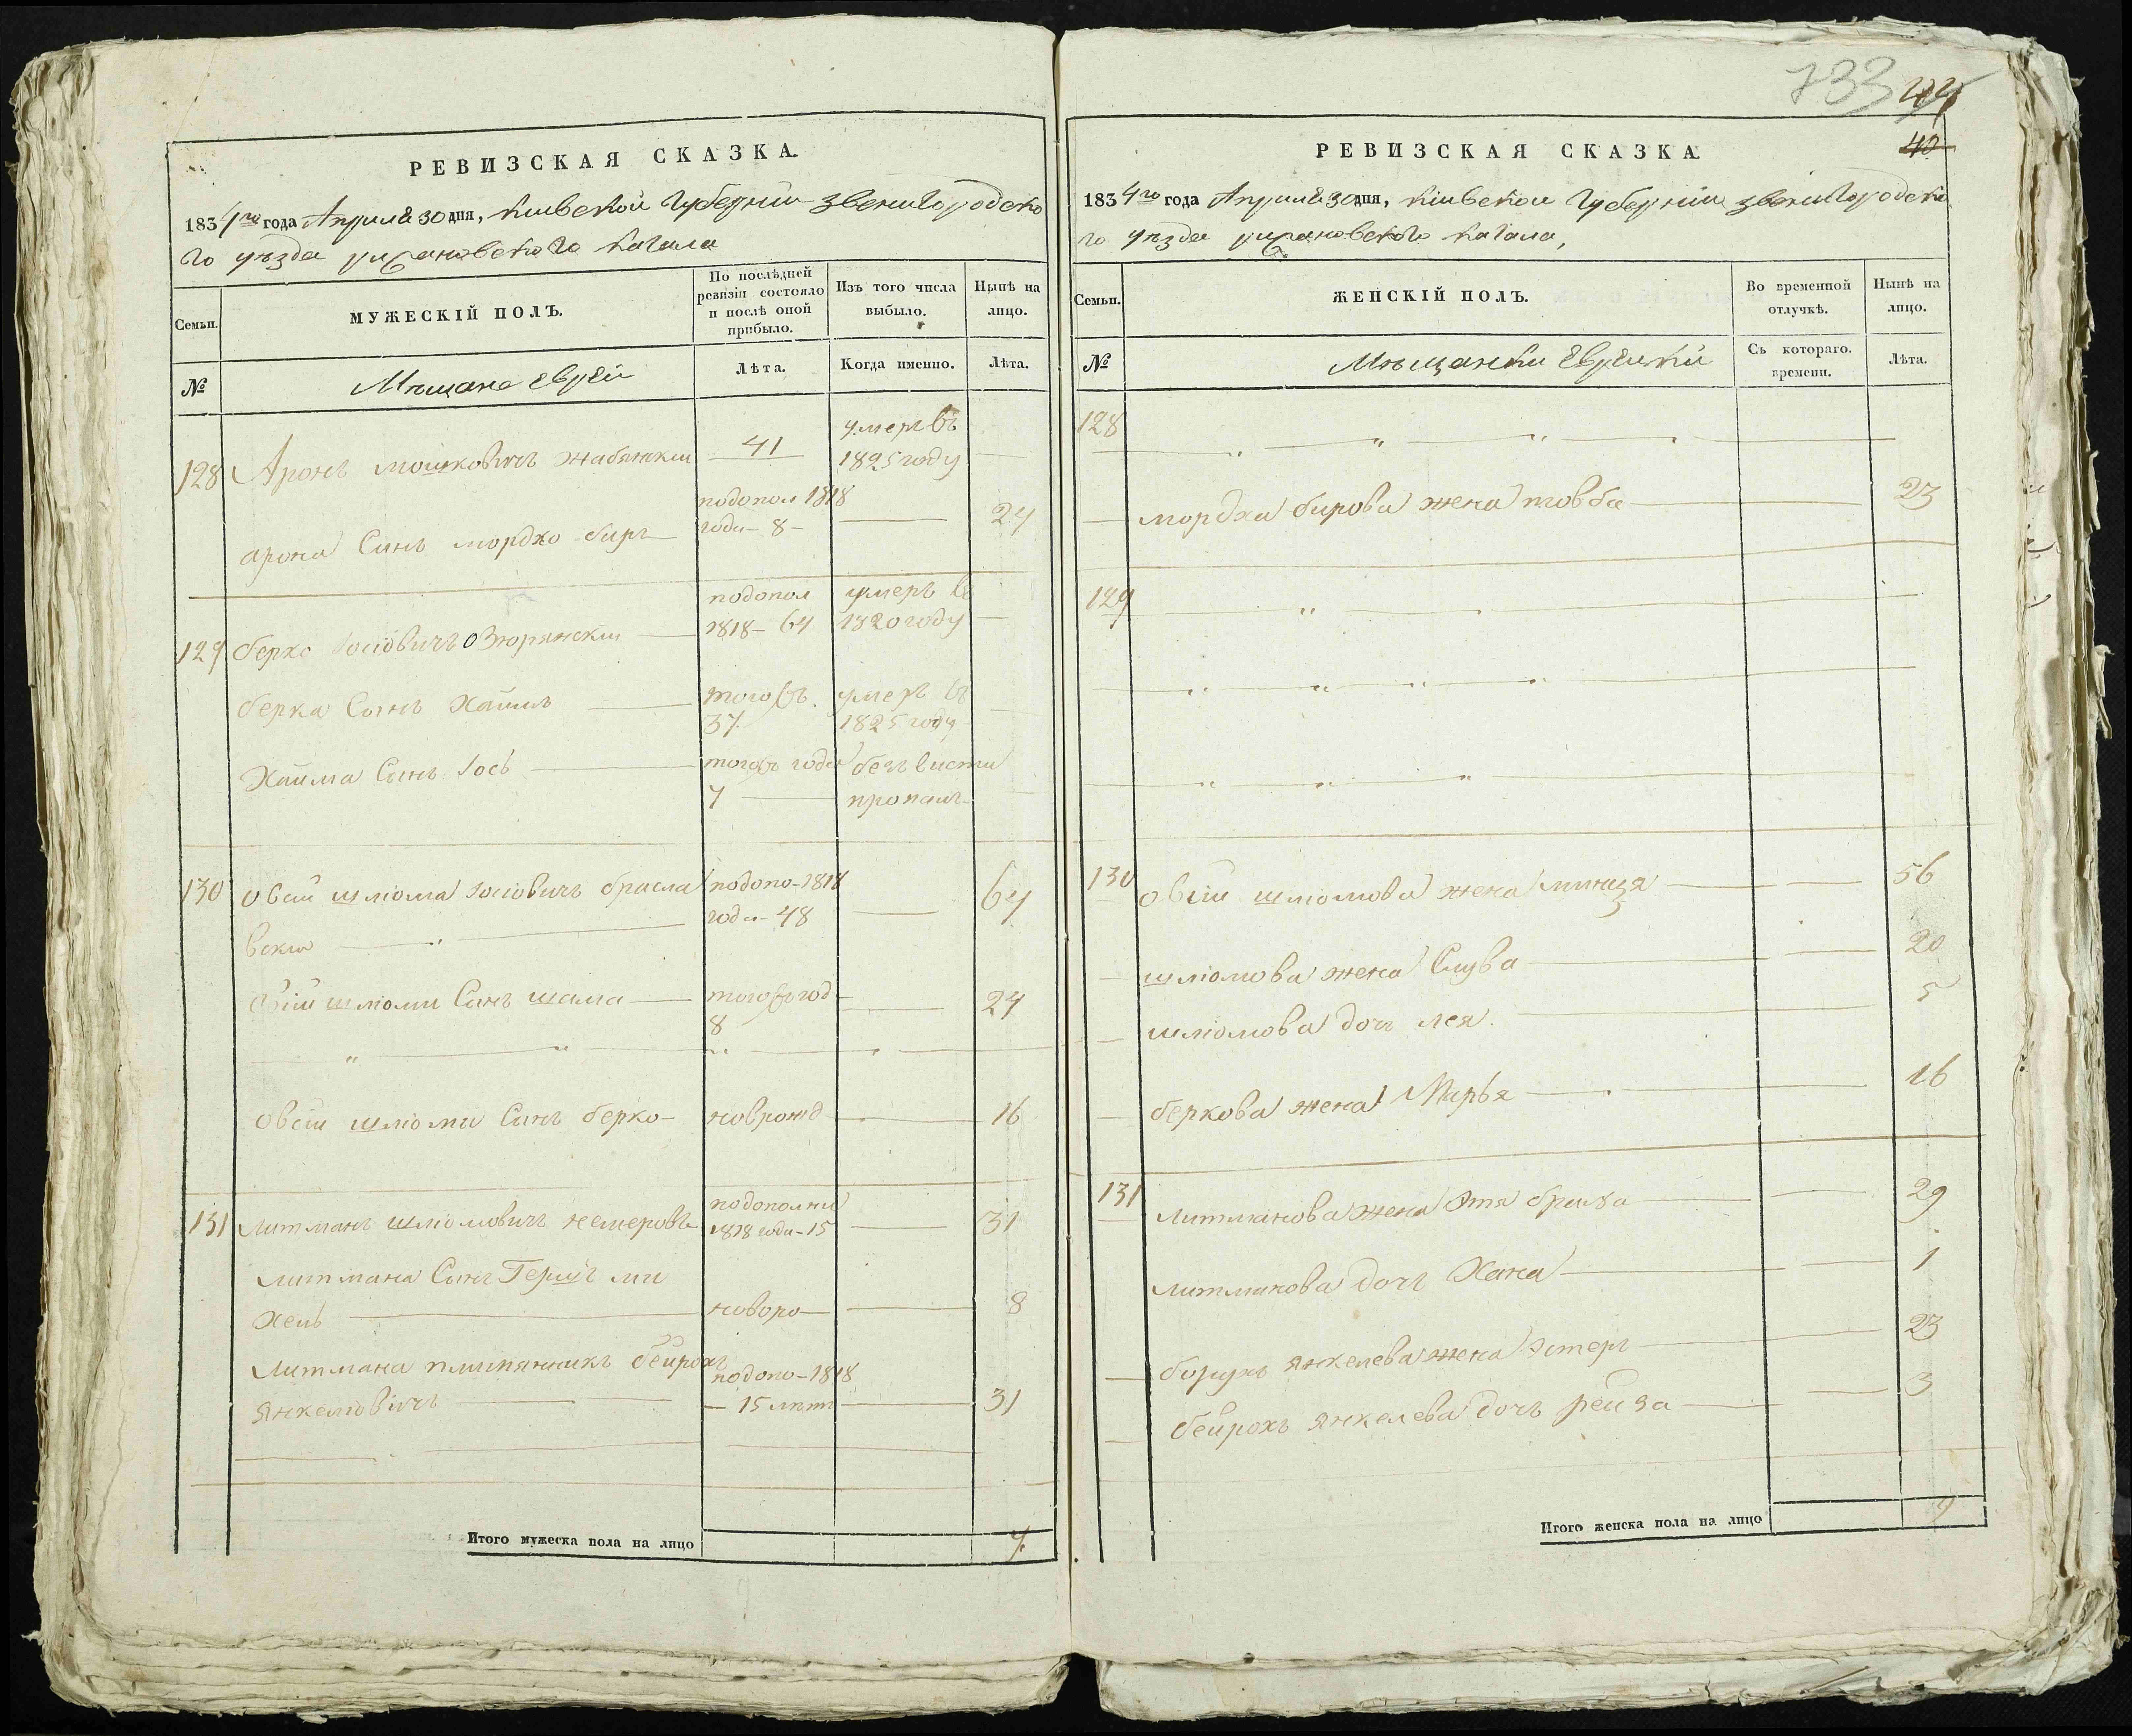 РЕВИЗСКАЯ СКАЗКА.
1834го года Априля 30 дня, Кіивской Губерніи Звенигородско
го уѣзда кагала
Семьи.
МУЖЕСКІЙ ПОЛЪ.
По послѣдней ревизіи состояло и послѣ оной прибыло.
Изъ того числа выбыло.
Нынѣ на лицо.
№
Мѣщане Евреи
Лѣта.
Когда именно.
Лѣта.
128 Аронъ Мошковичъ Жабянски 41 умеръ въ 1825 году
арона Синъ мордко биръ подопол 1818 года - 8 - 24
129 берко Іосіовичъ Озюрянски подопол 1818 - 64 умеръ въ 1820 году
берка Сынъ Хаимъ тогожъ 37 умеръ въ 1825 году
Хаима Синъ Іось тогожъ года 7 безъ висти пропалъ
130 Овсій шліома Іосіовичъ брасла подопо - 1818
вски года - 48 64
Овсій шліоми Синъ шама тогожъ год 8 24
Овсій шліоми Синъ берко - новрожд 16
131 Литманъ шліомовичъ немеровъ подополни 1818 года - 15 31
литмана Синъ Герщъ ми
хель новоро 8
Литмана племянникъ бейрохъ подопо - 1818
Янкеліовичъ - 15 лѣтъ 31
Итого мужеска пола на лицо 7.
733 44
40
РЕВИЗСКАЯ СКАЗКА
1834го года Априля 30 дня, Кіивской Губерніи Звенигородска
го уѣзда кагала,
Семьи.
ЖЕНСКІЙ ПОЛЪ.
Во временной отлучкѣ.
Нынѣ на лицо.
№
Мѣщанки Еврейки
Съ котораго. времени.
Лѣта.
128
мордха бирова жена товба 23
129
130 Овсіи шліомова жена минця 56
шліомова жена Слува 20
шліомова дочъ лея. 5
беркова жена Мирья 16
131 Литманова жена Этя брайза 29
литманова дочъ Хана 1
борухъ янкелева жена Эстеръ 23
бейрохъ янкелева дочъ рейза 3
Итого женска пола на лицо 9